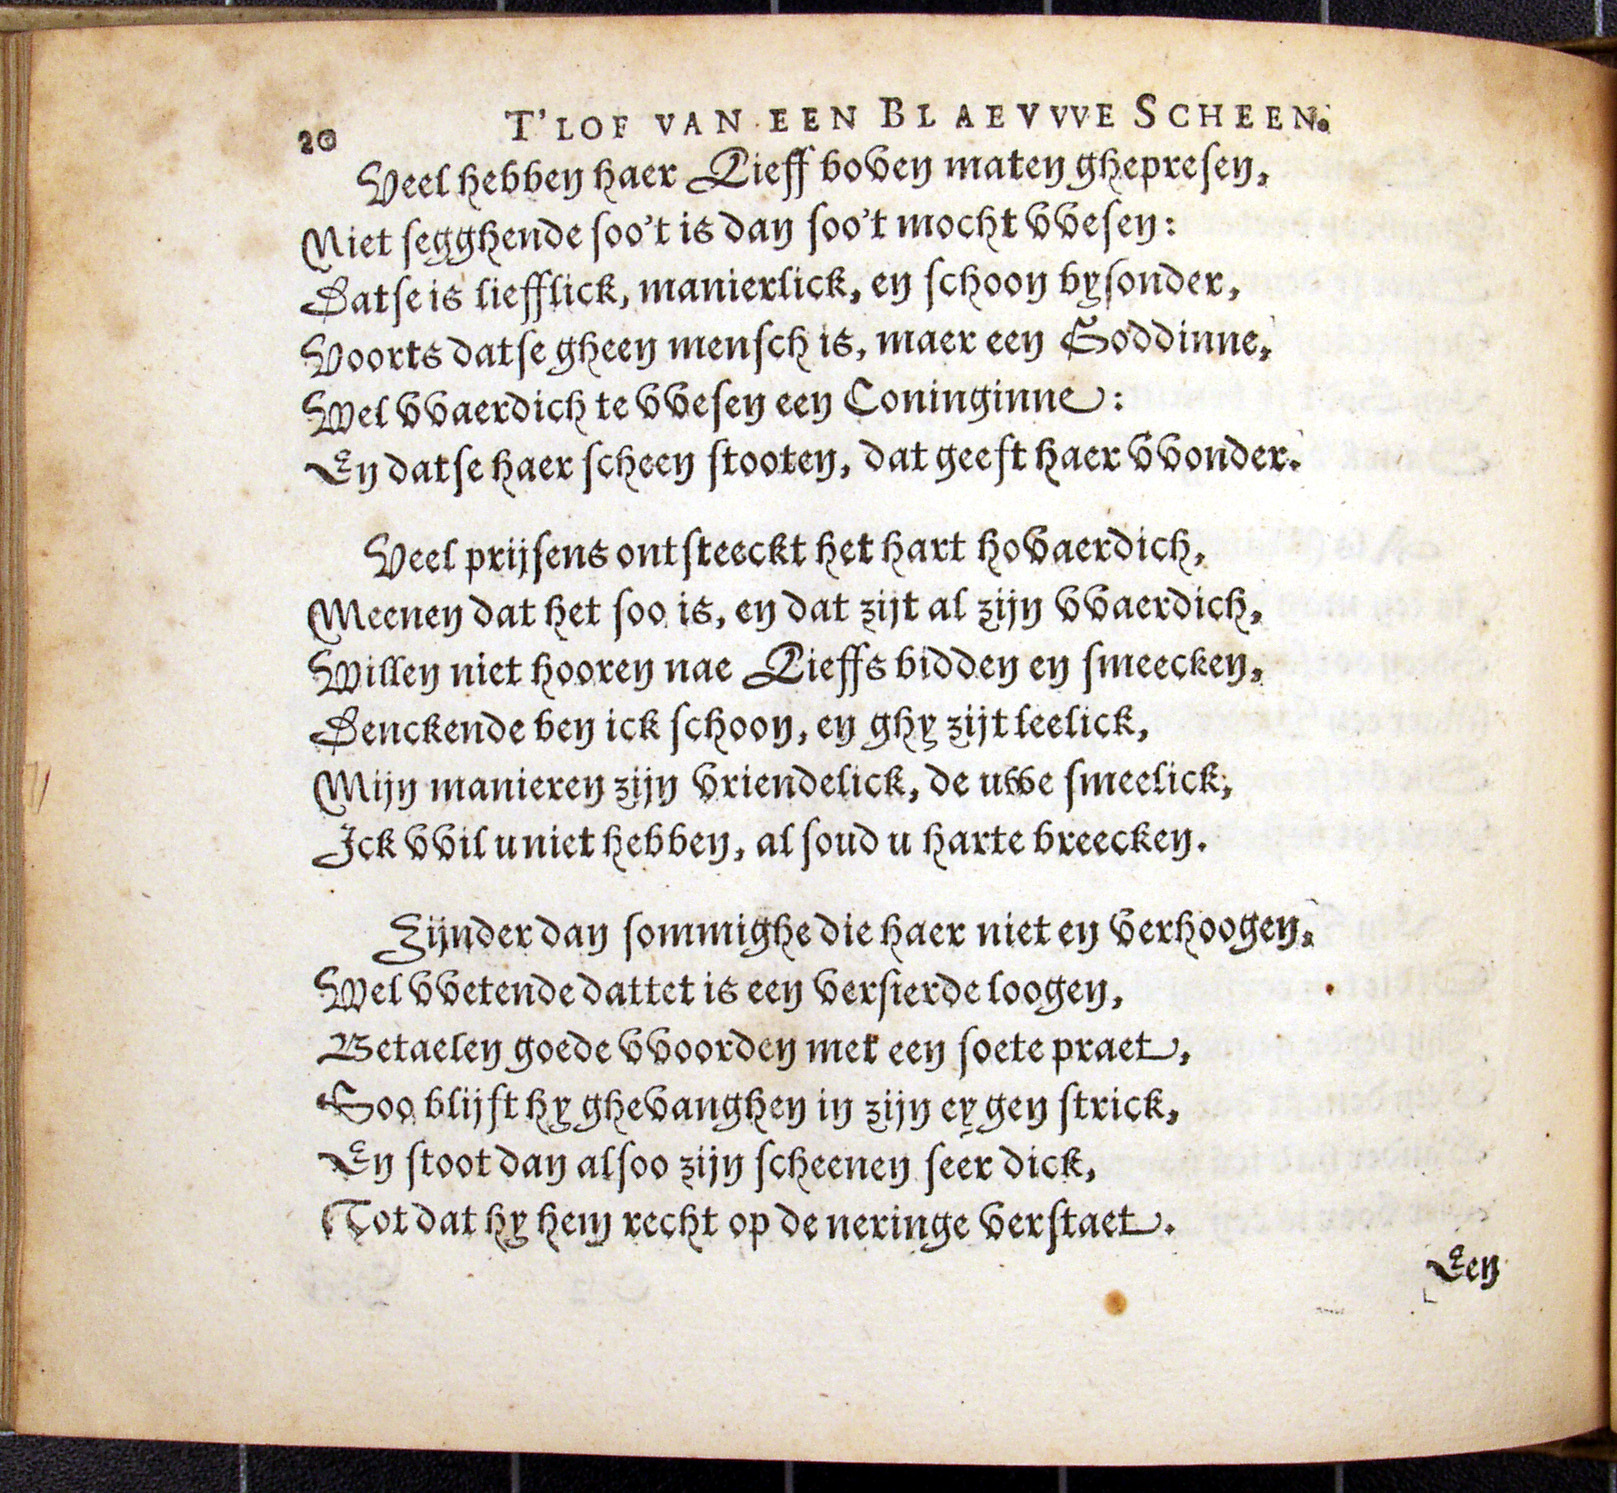 20
T'LOF VAN EEN BLAEVVVE SCHEEN.
Veel hebben haer Lieff boven maten ghepresen,
Niet segghende soo't is dan soo't mocht vvesen:
Datse is liefflick, manierlick, en schoon bysonder,
Voorts datse gheen mensch is, maer een Goddinne,
Wel vvaerdich te vvesen een Coninginne:
En datse haer scheen stooten, dat geeft haer vvonder.
Veel prijsens ontsteeckt het hart hovaerdich,
Meenen dat het soo is, en dat zijt al zijn vvaerdich,
Willen niet hooren nae Lieffs bidden en smeecken,
Denckende ben ick schoon, en ghy zijt leelick,
Mijn manieren zijn vriendelick, de uwe smeelick,
Ick vvil u niet hebben, al soud u harte breecken.
Zijnder dan sommighe die haer niet en verhoogen,
Wel vvetende dattet is een versierde loogen,
Betaelen goede vvoorden met een soete praet,
Soo blijft hy ghevanghen in zijn eygen strick,
En stoot dan alsoo zijn scheenen seer dick,
Tot dat hy hem recht op de neringe verstaet.
Een